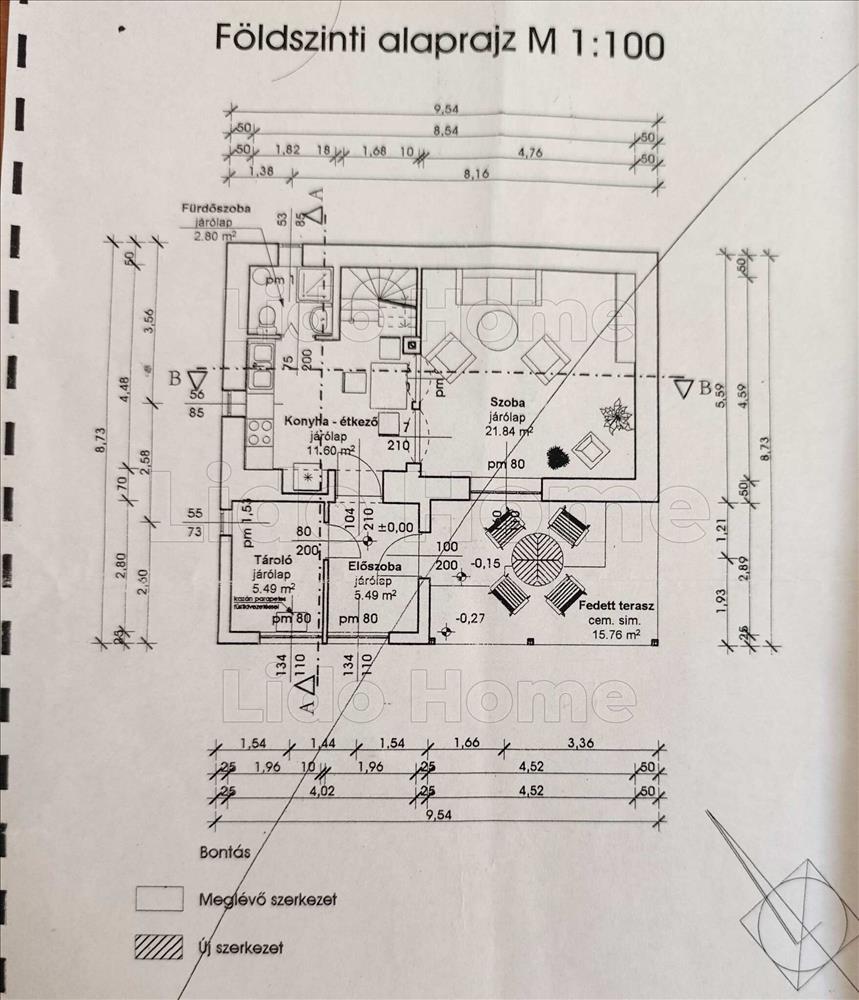 Földszinti alaprajz M 1:100
9,54
50 8,54 50
50 1,82 18 1,68 10 4,76 50
1,38 8,16
A
53
85
Fürdőszoba
járólap
2.80 m²
pm 1
75
200
B
B
56
85
Konyha - étkező
járólap
11.60 m²
7
210
pm
Szoba
járólap
21.84 m²
pm 80
55
73
pm 1,53
80
200
104
210
±0,00
100
200
-0,15
-0,27
Tároló
járólap
5.49 m²
kazán parapetes
füstkivezetéssel
pm 80
Előszoba
járólap
5.49 m²
pm 80
Fedett terasz
cem. sim.
15.76 m²
134
110
134
110
A
8,73
50
4,48
70
2,80
25
3,56
2,58
2,60
5,59
1,21
1,93
50
4,59
50
2,89
25
8,73
1,54 1,44 1,54 1,66 3,36
25 1,96 10 1,96 25 4,52 50
25 4,02 25 4,52 50
9,54
Bontás
Meglévő szerkezet
Új szerkezet
Lido Home
Lido Home
Lido Home
Lido Home